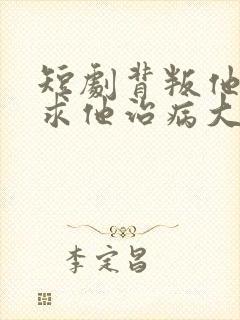 短劇背叛他
求他治病大
李定昌